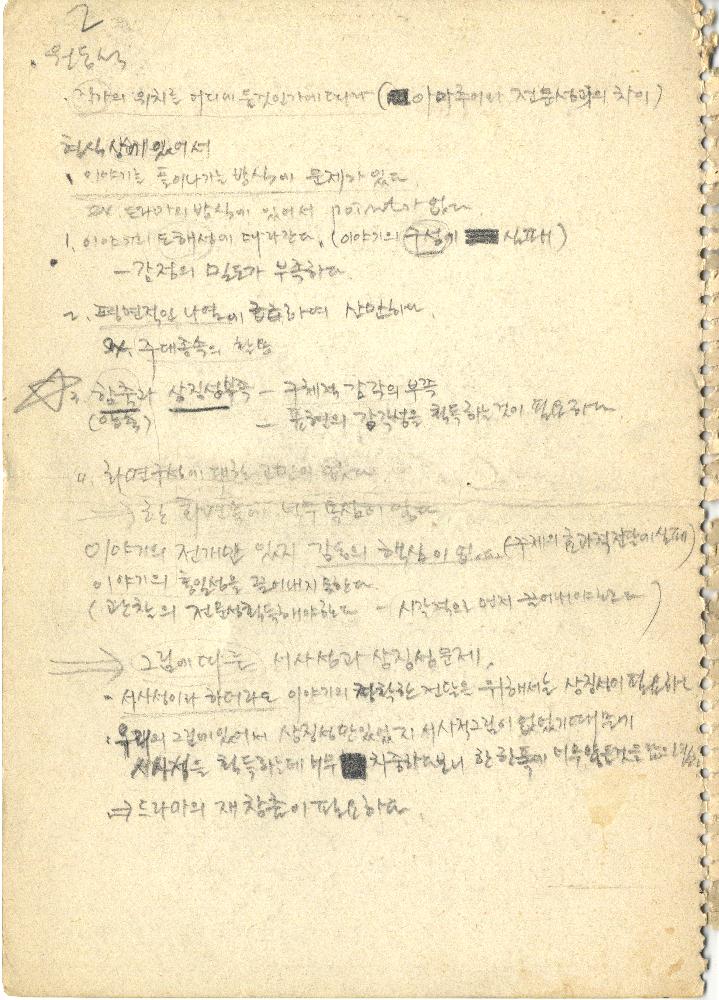 2
· 원동석
· 작가의 위치를 어디에 둘것인가에 따라 (아마추어와 전문성과의 차이)
형식상에 있어서
\ 이야기를 풀어나가는 방식에 문제가 있다.
ex. 드라마의 방식에 있어서 point가 없다
1. 이야기의 도해성에 대 간다. (이야기의 구성에 실패)
- 감정의 밀도가 부족하다.
2. 평면적인 나열에 급급하며 산만하다.
ex. 주대종속의
☆ 3. 함축과 상징성부족 - 구체적 감각의 부족
(압축) - 표현의 감각성을 획득하는것이 필요하다.
4. 화면구성에 대한 고민이 없다
→ 한 화면속에 너무 통상이 있다
이야기의 전개만 있지 감동의 핵심이 없다. (주제의 효과적전달에실패)
이야기의 통일성을 끌어내지 못한다.
(관찰의 전문성획득해야한다 - 시각적인 먼저 끌어내야한다)
⇒ 그림에 따른 서사성과 상징성문제.
- 서사성이라 하더라도 이야기의 정확한 전달을 위해서는 상징성이 필요하다
· 우리의 그림에있어서 상징성만있었지 서사적그림이 없었기때문에
서사성을 획득하는데 너무 치중하다보니 한 화폭에 너무많은것을
⇒ 드라마의 재창출이 필요하다.